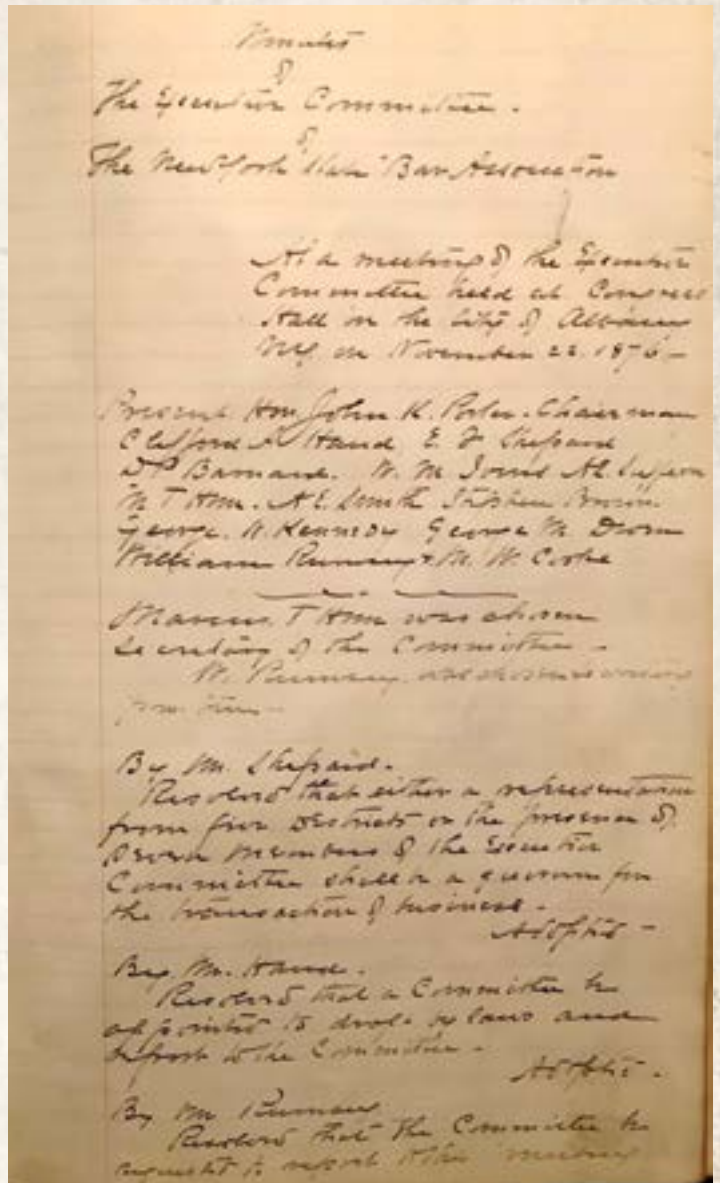 Minutes
of
The Executive Committee.
of
The New York State Bar Association
At a meeting of the Executive
Committee held at Congress
Hall in the City of Albany
NY. on November 22. 1876 -
Present Hon John K. Porter. Chairman
Clifford A Hand E. F Shepard
D P Barnard. W. M
M T Hun. A E. Smith Stephen Brown.
George. N. Kennedy George M. Diven
William Rumsey & M. W. Cooke
Marcus. T Hun was chosen
Secretary of the Committee.
W. Rumsey
pro. tem -
By Mr. Shepard.
Resolved that either a representation
from five Districts or the presence of
seven members of the Executive
Committee shall be a quorum for
the transaction of business.
Adopted -
By Mr. Hand.
Resolved that a Committee be
appointed to draft by laws and
report to the Committee.
Adopted.
By Mr Rumsey
Resolved that the Committee be
requested to report to this meeting